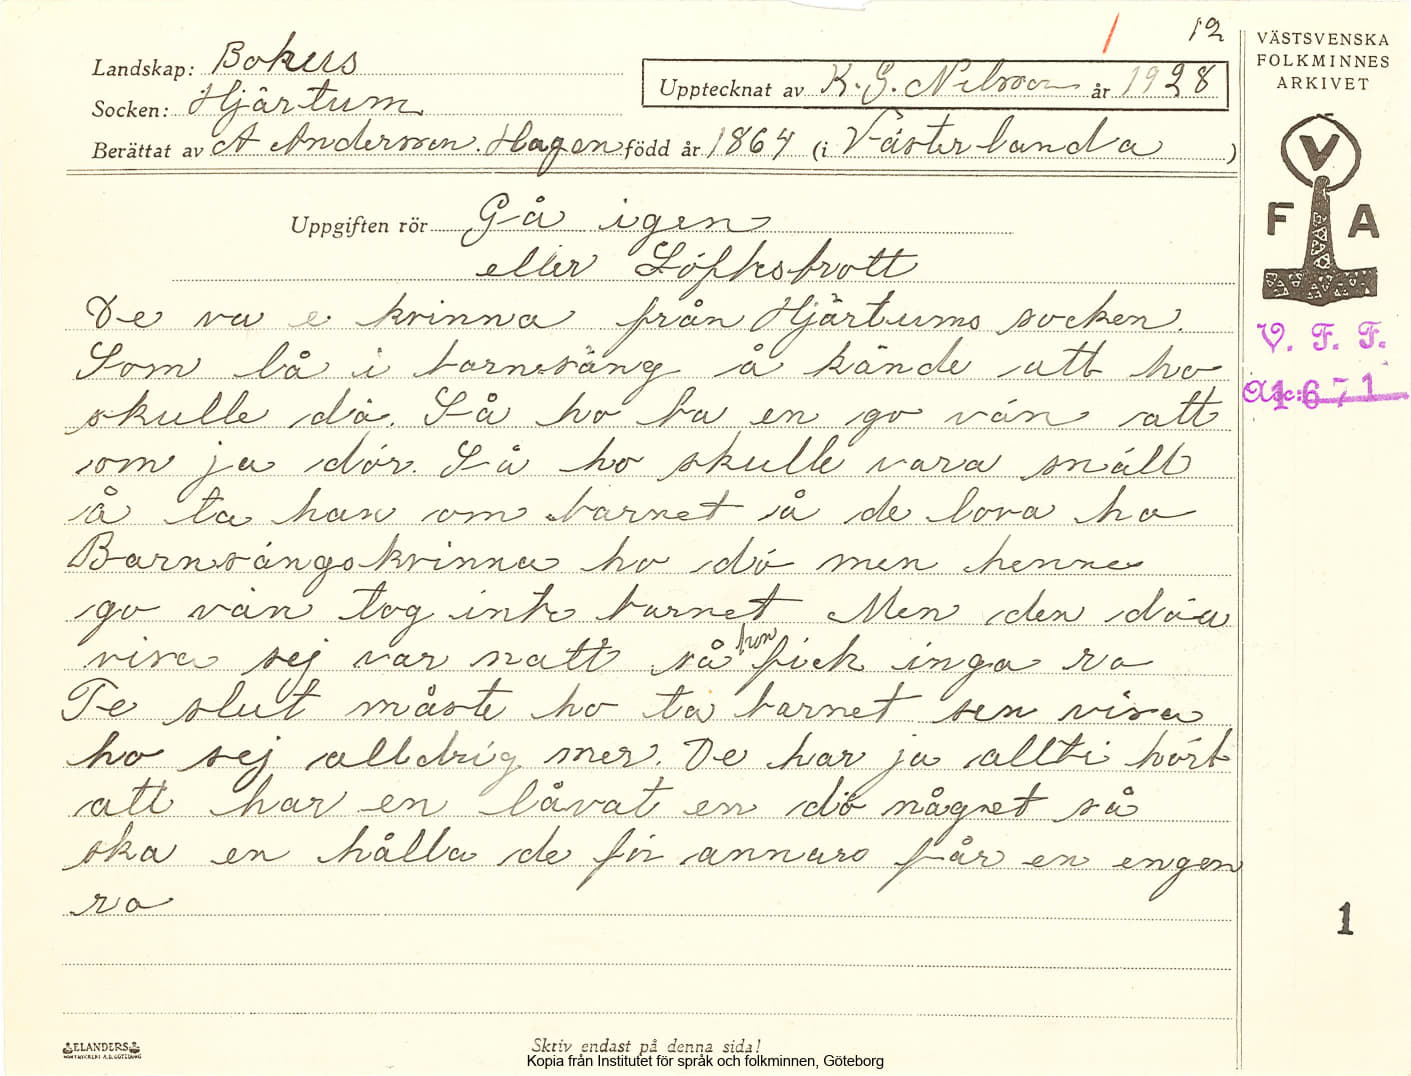 12
Landskap: Bohus
Socken: Hjärtum
Upptecknat av K. G. Nilsson år 1928
Berättat av A Andersson. Hagen född år 1864 (i Västerlanda )
VÄSTSVENSKA
FOLKMINNES
ARKIVET
V
F A
V. F. F.
Acc: 1671
Uppgiften rör Gå igen
eller Löftesbrott
De va e kvinna från Hjärtums socken.
Som lå i barnsäng å kände att ho
skulle dö. Så ho ba en go vän att
om ja dör. Så ho skulle vara snäll
å ta han om barnet å de lova ho
Barnsängskvinna ho dö men henne
go vän tog inte barnet Men den döa
visa sej var natt så hon fick inga ro
Te slut måste ho ta barnet sen visa
ho sej alldrig mer. De har ja allti hört
att har en låvat en dö någet så
ska en hålla de för annars får en engen
ro
1
ELANDERS
Skriv endast på denna sida!
Kopia från Institutet för språk och folkminnen, Göteborg